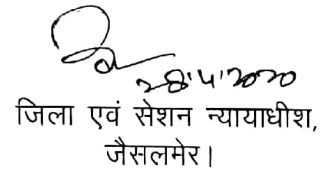 28.4.2020
जिला एवं सेशन न्यायाधीश,
जैसलमेर।